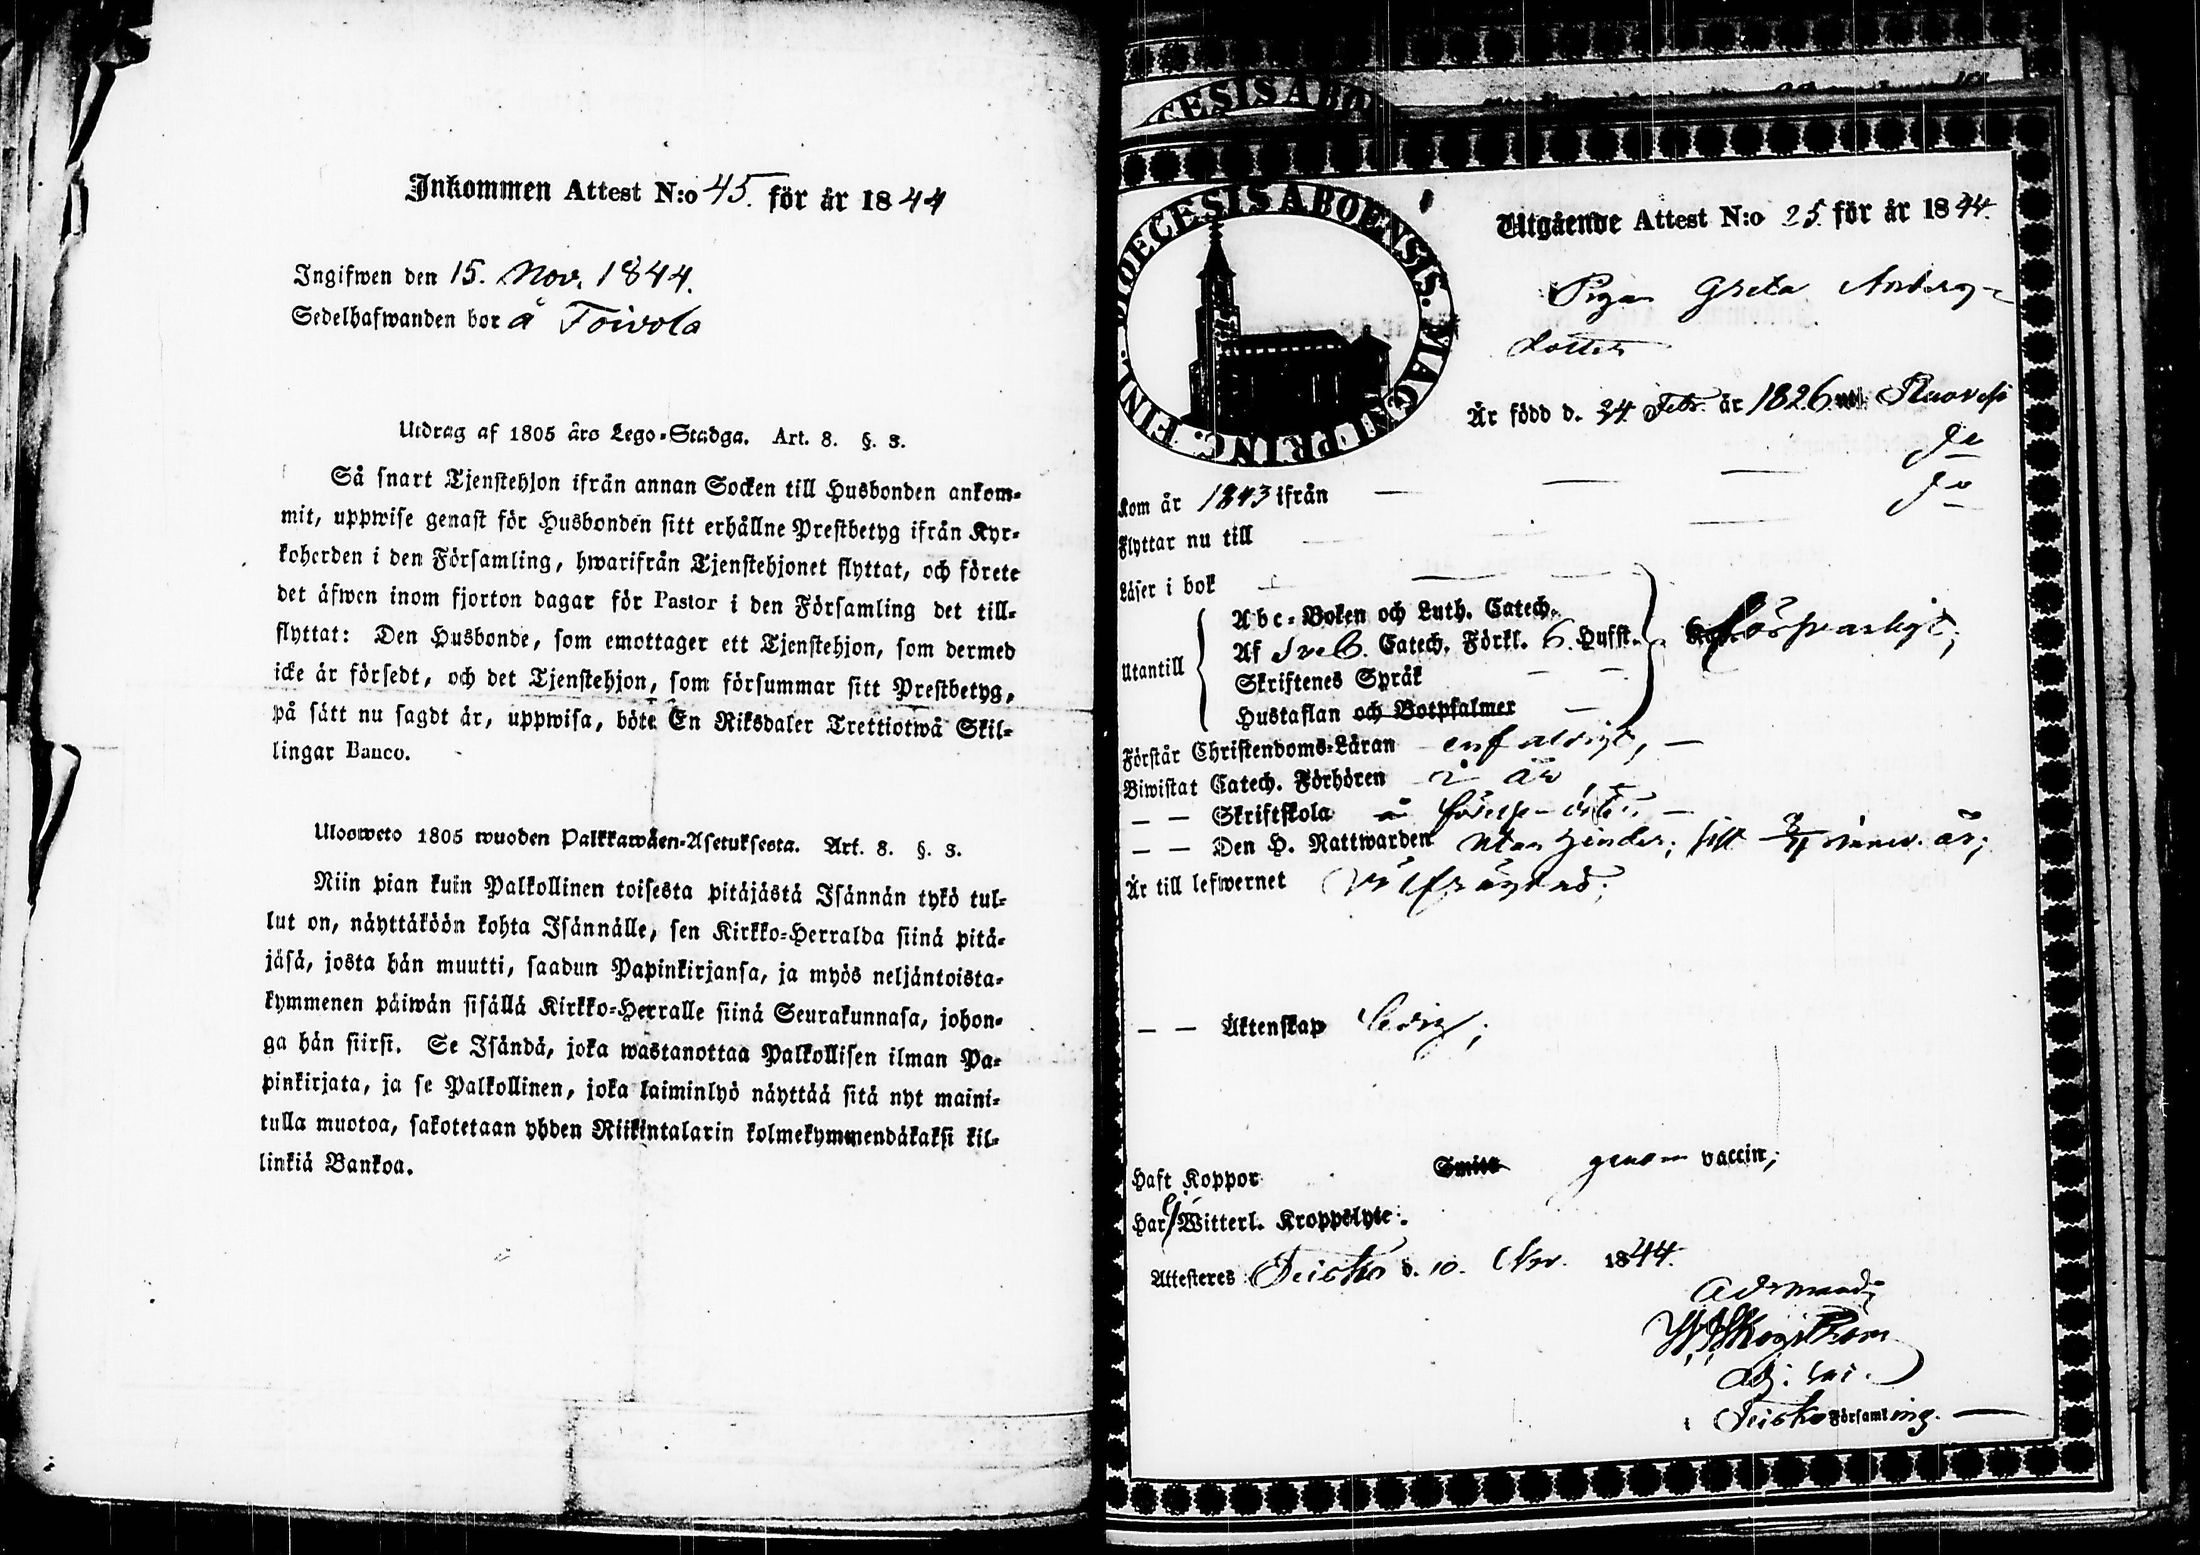 Inkommen Attest N:o 45. för år 1844
Ingifwen den 15. Nov. 1844.
Sedelhafwanden bor å Toivola
Utdrag af 1805 års Lego-Stadga. Art. 8. §. 3.
Så snart Tjenstehjon ifrån annan Socken till Husbonden ankom-
mit, uppwise genast för Husbonden sitt erhållne Prestbetyg ifrån Kyr-
koherden i den Församling, hwarifrån Tjenstehjonet flyttat, och förete
det äfwen inom fjorton dagar för Pastor i den Församling det till-
flyttat: Den Husbonde, som emottager ett Tjenstehjon, som dermed
icke är försedt, och det Tjenstehjon, som försummar sitt Prestbetyg,
på sätt nu sagdt är, uppwisa, böte En Riksdaler Trettiotwå Skil-
lingar Banco.
Ulosweto 1805 wuoden Palkkawäen-Asetuksesta. Art. 8. §. 3.
Niin pian kuin Palkollinen toisesta pitäjästä Isännän tykö tul-
lut on, näyttäköön kohta Isännälle, sen Kirkko-Herralda siinä pitä-
jäsä, josta hän muutti, saadun Papinkirjansa, ja myös neljäntoista-
kymmenen päiwän sisällä Kirkko-Herralle siinä Seurakunnasa, johon-
ga hän siirsi. Se Isändä, joka wastanottaa Palkollisen ilman Pa-
pinkirjata, ja se Palkollinen, joka laiminlyö näyttää sitä nyt maini-
tulla muotoa, sakotetaan yhden Riikintalarin kolmekymmendäkaksi kil-
linkiä Bankoa.
CESIS ABO
DIOECESIS ABOENSIS. MAGN. PRINC. FINL.
Utgående Attest N:o 25. för år 1844.
Pigan Greta
dotter
Är född d. 24 Febr. år 1826. Ruovesi
Kom år 1843 ifrån — — — Do
Flyttar nu till — — — Do
Läser i bok — — —
Utantill
Abc-Boken och Luth. Catech.
Af Sveb. Catech. Förkl. 6. Hufst. försvarligt;
Skriftenes Språk — —
Hustaflan och Botpsalmer —
Förstår Christendoms-Läran enfaldigt, —
Biwistat Catech. Förhören i år
— — Skriftskola å
— — Den H. Nattwarden utan hinder; sist
Är till lefwernet välfrägdad;
— — Äktenskap ledig;
Haft Koppor genom vaccin;
Har ej Witterl. Kroppslyte.
Attesteres Teisko d. 10. Nov. 1844.
Adj.
Teisko Församling. —